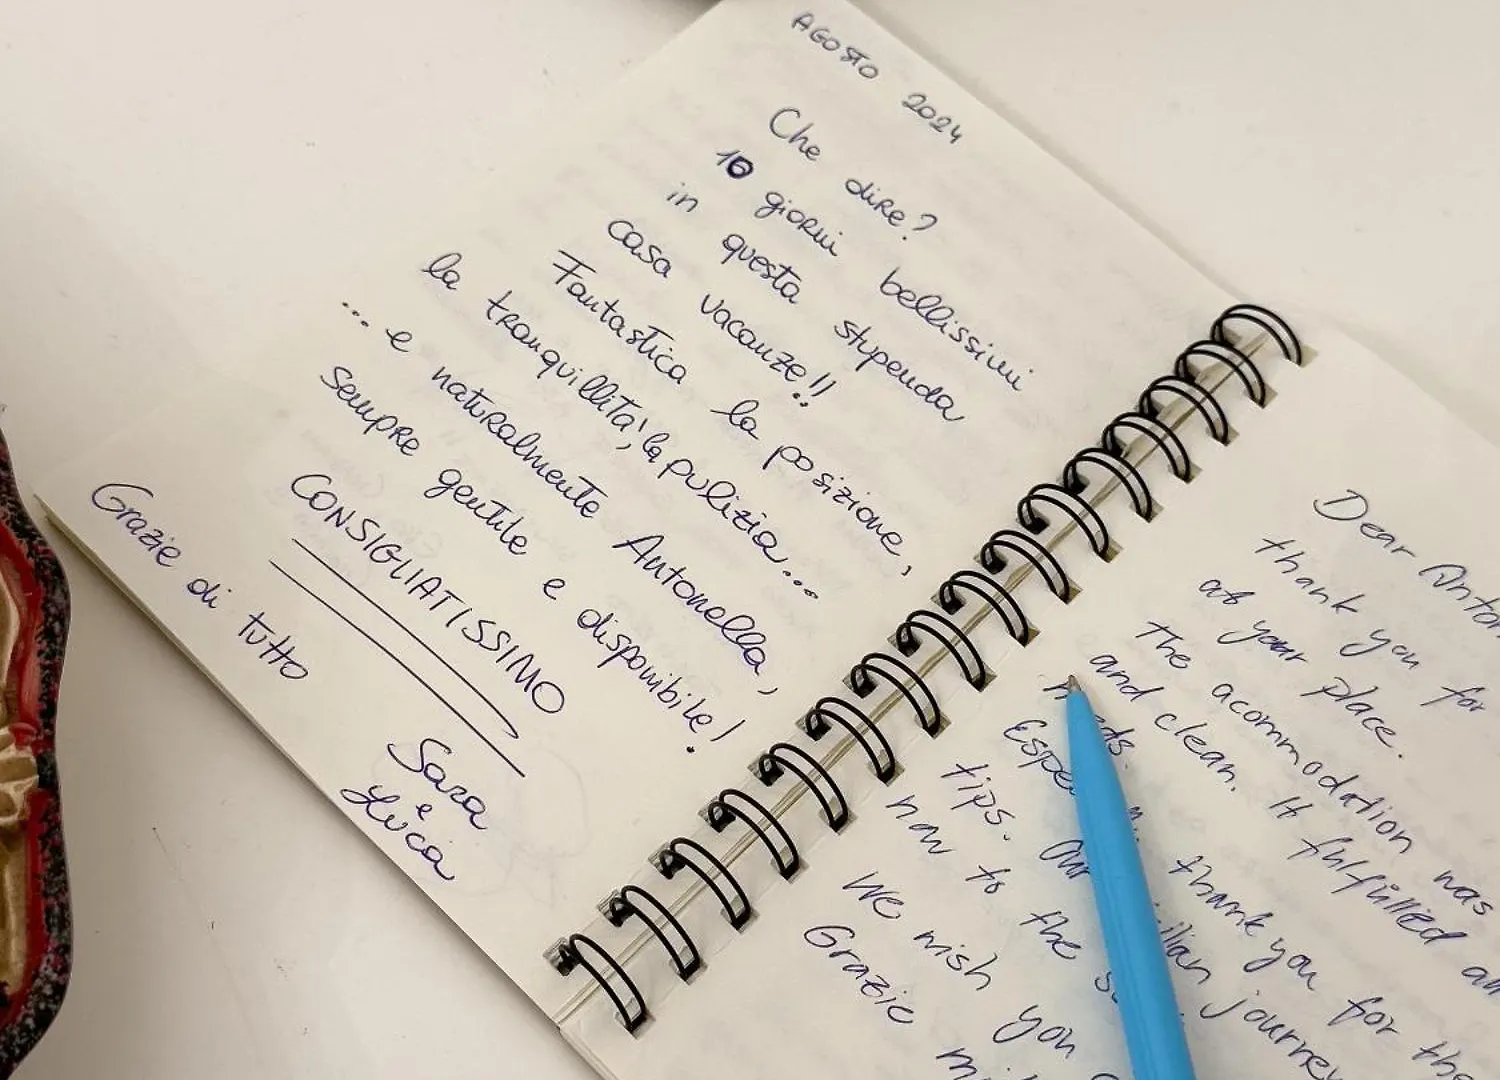 AGOSTO 2024
Che dire?
10 giorni bellissimi
in questa stupenda
casa vacanze!!
Fantastica la posizione,
la tranquillità, la pulizia...
... e naturalmente Antonella,
sempre gentile e disponibile!
CONSIGLIATISSIMO
Grazie di tutto
Sara
e
Luca
Dear
thank you for
at your place.
The acomodation was
and clean. It fulfilled
thank you for the
tips. Our journey
now to the
We wish you
Grazie